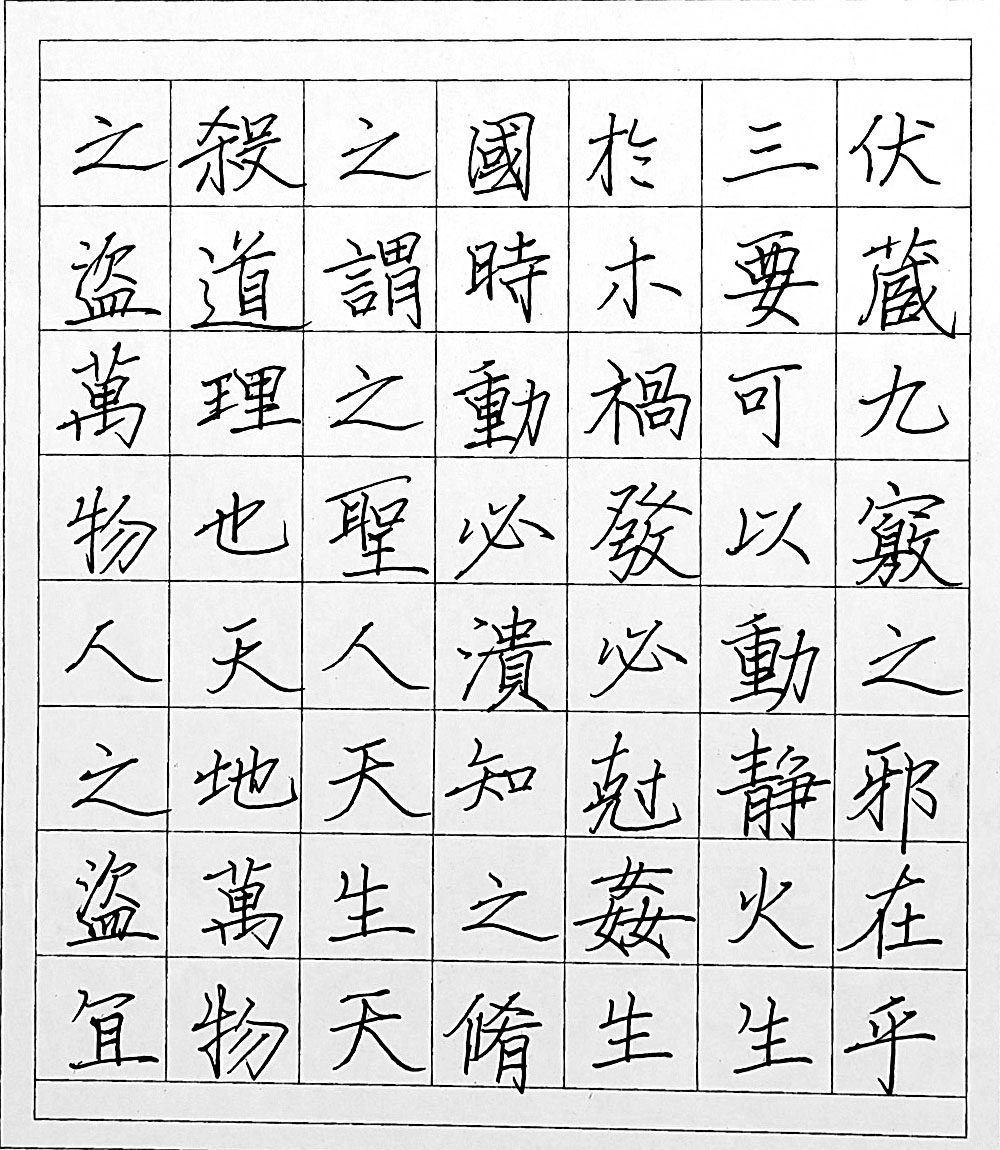 伏藏九竅之邪在乎
三要可以動静火生
於木禍發必尅姦生
國時動必潰知之脩
之謂之聖人天生天
殺道理也天地萬物
之盜萬物人之盜冝